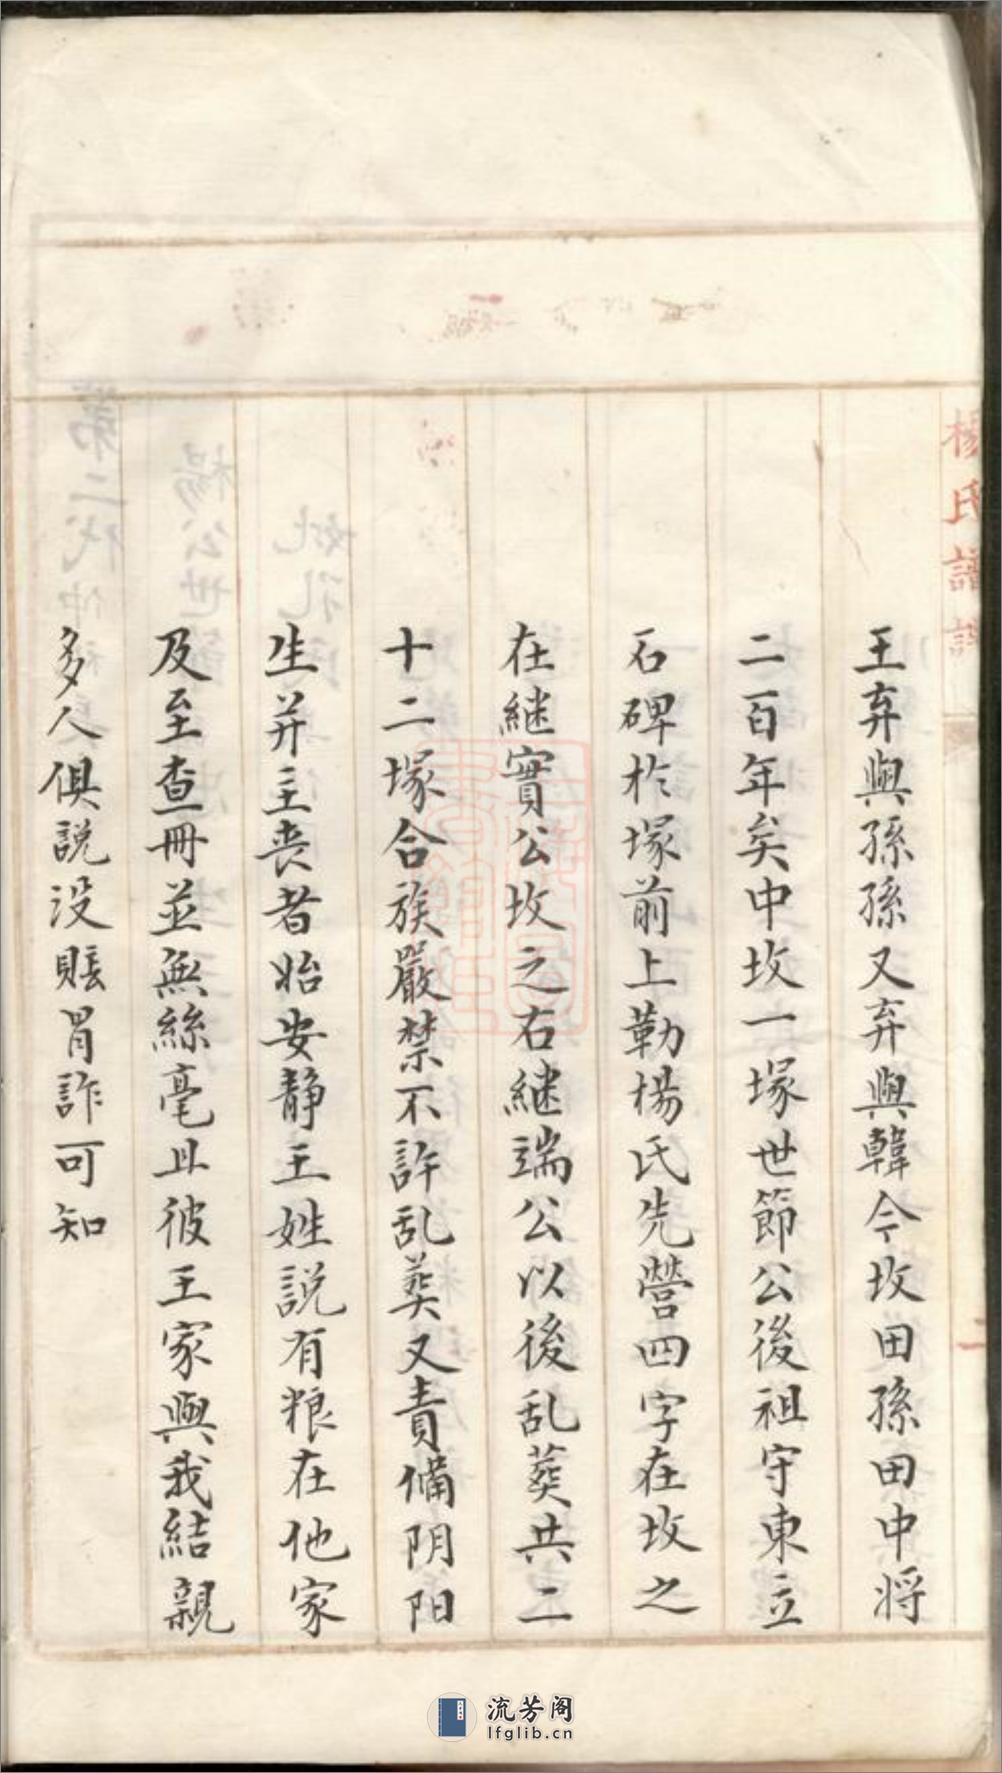 王弃與孫孫又弃與韓今坟田孫田中將
二百年矣中坟一塚世節公後祖守東立
石碑於塚前上勒楊氏先營四字在坟之
在継實公坟之右継端公以後乱葬共二
十二塚合族嚴禁不許乱葬又責備阴阳
生并主丧者始安静王姓説有粮在他家
及至查冊並無絲毫且彼王家與我結親
多人俱説没賬冐詐可知
楊氏譜
二
流芳阁
lfglib.cn